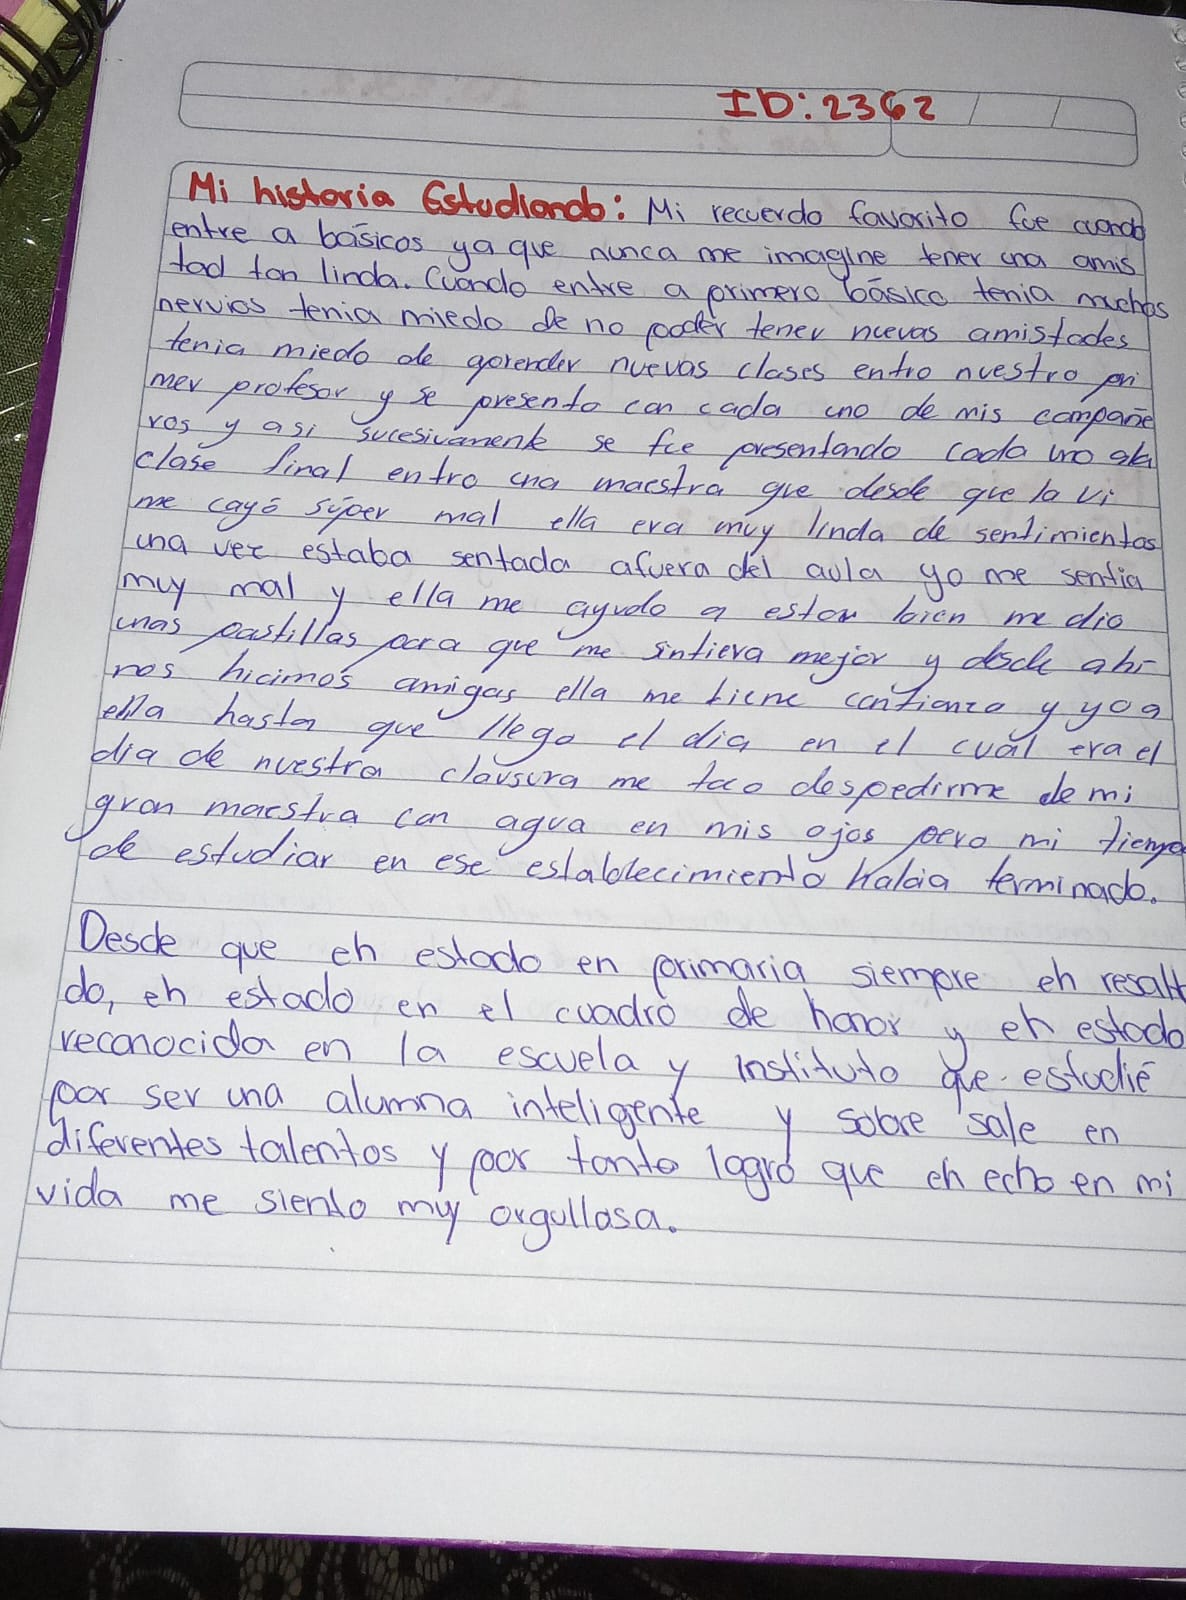 ID: 2362
Mi historia Estudiando: Mi recuerdo favorito fue cuando
entre a básicos ya que nunca me imagine tener una amis
tad tan linda. Cuando entre a primero básico tenia muchos
nervios tenia miedo de no poder tener nuevas amistades
tenia miedo de aprender nuevas clases entro nuestro pri
mer profesor y se presento con cada uno de mis compañe
ros y asi sucesivamente se fue presentando cada uno a la
clase final entro una maestra que desde que la vi
me cayó súper mal ella era muy linda de sentimientos
una vez estaba sentada afuera del aula yo me sentia
muy mal y ella me ayudo a estar bien me dio
unas pastillas para que me sintiera mejor y desde ahi
nos hicimos amigas ella me tiene confianza y yo a
ella hasta que llego el dia en el cual era el
dia de nuestra clausura me toco despedirme de mi
gran maestra con agua en mis ojos pero mi tiempo
de estudiar en ese establecimiento habia terminado.
Desde que eh estado en primaria siempre eh resalta
do, eh estado en el cuadro de honor y eh estado
reconocida en la escuela y instituto que estudié
por ser una alumna inteligente y sobre sale en
diferentes talentos y por tanto logró que eh echo en mi
vida me siento my orgullosa.